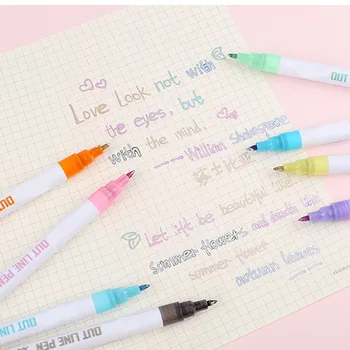 Love Look not with
the eyes, but
with the mind.
— William Shakespeare
Let life be beautiful like
Summer flowers and death like
summer flower
autumn leaves
OUT LINE PEN
OUT LINE PEN
OUT LINE PEN
OUT LINE PEN
OUT LINE
OUT LINE
OUT